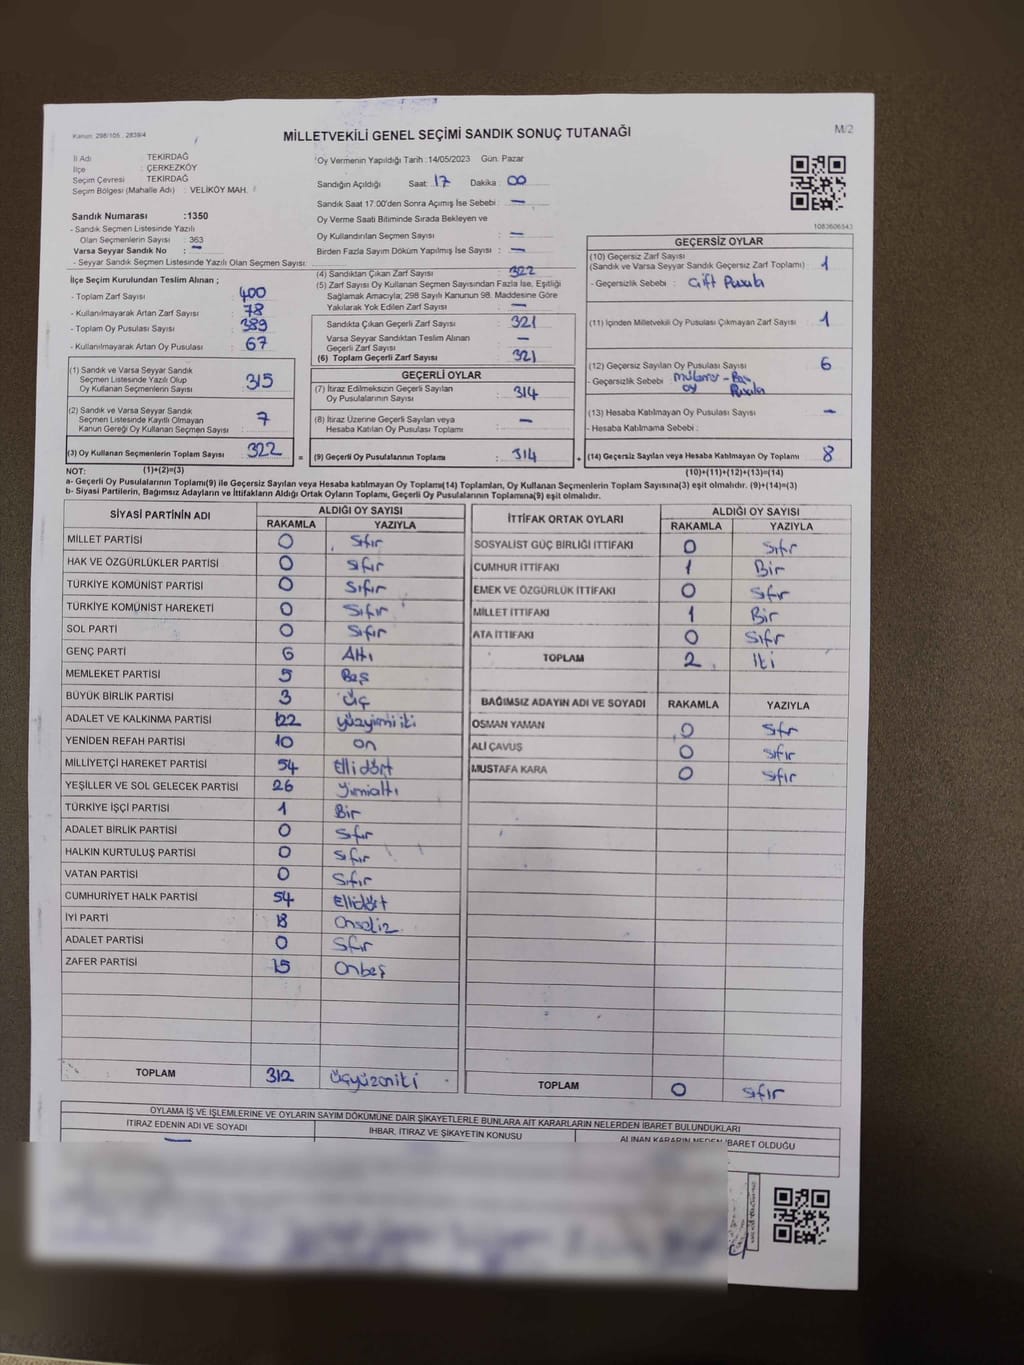 Kanun: 298/105 , 2839/4
MİLLETVEKİLİ GENEL SEÇİMİ SANDIK SONUÇ TUTANAĞI
M/2
İl Adı : TEKİRDAĞ
İlçe : ÇERKEZKÖY
Seçim Çevresi : TEKİRDAĞ
Seçim Bölgesi (Mahalle Adı) : VELİKÖY MAH.
Oy Vermenin Yapıldığı Tarih :14/05/2023 Gün. Pazar
Sandığın Açıldığı Saat: 17 Dakika : 00
Sandık Saat 17.00'den Sonra Açımış İse Sebebi : —
Oy Verme Saati Bitiminde Sırada Bekleyen ve
Oy Kullandırılan Seçmen Sayısı : —
Birden Fazla Sayım Döküm Yapılmış İse Sayısı : —
1083606543
Sandık Numarası :1350
- Sandık Seçmen Listesinde Yazılı
Olan Seçmenlerin Sayısı : 363
Varsa Seyyar Sandık No : —
- Seyyar Sandık Seçmen Listesinde Yazılı Olan Seçmen Sayısı:
İlçe Seçim Kurulundan Teslim Alınan ;
- Toplam Zarf Sayısı : 400
- Kullanılmayarak Artan Zarf Sayısı : 78
- Toplam Oy Pusulası Sayısı : 389
- Kullanılmayarak Artan Oy Pusulası : 67
(1) Sandık ve Varsa Seyyar Sandık
Seçmen Listesinde Yazılı Olup
Oy Kullanan Seçmenlerin Sayısı : 315
(2) Sandık ve Varsa Seyyar Sandık
Seçmen Listesinde Kayıtlı Olmayan
Kanun Gereği Oy Kullanan Seçmen Sayısı : 7
(3) Oy Kullanan Seçmenlerin Toplam Sayısı : 322
(4) Sandıktan Çıkan Zarf Sayısı : 322
(5) Zarf Sayısı Oy Kullanan Seçmen Sayısından Fazla İse, Eşitliği
Sağlamak Amacıyla; 298 Sayılı Kanunun 98. Maddesine Göre
Yakılarak Yok Edilen Zarf Sayısı : —
Sandıkta Çıkan Geçerli Zarf Sayısı : 321
Varsa Seyyar Sandıktan Teslim Alınan
Geçerli Zarf Sayısı : —
(6) Toplam Geçerli Zarf Sayısı : 321
GEÇERLİ OYLAR
(7) İtiraz Edilmeksizin Geçerli Sayılan
Oy Pusulalarının Sayısı : 314
(8) İtiraz Üzerine Geçerli Sayılan veya
Hesaba Katılan Oy Pusulası Toplamı : —
= (9) Geçerli Oy Pusulalarının Toplamı : 314 +
GEÇERSİZ OYLAR
(10) Geçersiz Zarf Sayısı
(Sandık ve Varsa Seyyar Sandık Geçersiz Zarf Toplamı) : 1
- Geçersizlik Sebebi : Çift Pusula
(11) İçinden Milletvekili Oy Pusulası Çıkmayan Zarf Sayısı : 1
(12) Geçersiz Sayılan Oy Pusulası Sayısı : 6
- Geçersizlik Sebebi :
oy Pusula
(13) Hesaba Katılmayan Oy Pusulası Sayısı : —
- Hesaba Katılmama Sebebi :
(14) Geçersiz Sayılan veya Hesaba Katılmayan Oy Toplamı : 8
NOT: (1)+(2)=(3) (10)+(11)+(12)+(13)=(14)
a- Geçerli Oy Pusulalarının Toplamı(9) ile Geçersiz Sayılan veya Hesaba katılmayan Oy Toplamı(14) Toplamları, Oy Kullanan Seçmenlerin Toplam Sayısına(3) eşit olmalıdır. (9)+(14)=(3)
b- Siyasi Partilerin, Bağımsız Adayların ve İttifakların Aldığı Ortak Oyların Toplamı, Geçerli Oy Pusulalarının Toplamına(9) eşit olmalıdır.
SİYASİ PARTİNİN ADI ALDIĞI OY SAYISI
RAKAMLA YAZIYLA
MİLLET PARTİSİ 0 Sıfır
HAK VE ÖZGÜRLÜKLER PARTİSİ 0 Sıfır
TÜRKİYE KOMÜNİST PARTİSİ 0 Sıfır
TÜRKİYE KOMÜNİST HAREKETİ 0 Sıfır
SOL PARTİ 0 Sıfır
GENÇ PARTİ 6 Altı
MEMLEKET PARTİSİ 5 Beş
BÜYÜK BİRLİK PARTİSİ 3 Üç
ADALET VE KALKINMA PARTİSİ 122 yüzyirmiiki
YENİDEN REFAH PARTİSİ 10 on
MİLLİYETÇİ HAREKET PARTİSİ 54 Ellidört
YEŞİLLER VE SOL GELECEK PARTİSİ 26 Yirmialtı
TÜRKİYE İŞÇİ PARTİSİ 1 Bir
ADALET BİRLİK PARTİSİ 0 Sıfır
HALKIN KURTULUŞ PARTİSİ 0 Sıfır
VATAN PARTİSİ 0 Sıfır
CUMHURİYET HALK PARTİSİ 54 Ellidört
İYİ PARTİ 18 Onsekiz
ADALET PARTİSİ 0 Sıfır
ZAFER PARTİSİ 15 Onbeş
TOPLAM 312 Üçyüzoniki
İTTİFAK ORTAK OYLARI ALDIĞI OY SAYISI
RAKAMLA YAZIYLA
SOSYALİST GÜÇ BİRLİĞİ İTTİFAKI 0 Sıfır
CUMHUR İTTİFAKI 1 Bir
EMEK VE ÖZGÜRLÜK İTTİFAKI 0 Sıfır
MİLLET İTTİFAKI 1 Bir
ATA İTTİFAKI 0 Sıfır
TOPLAM 2 İki
BAĞIMSIZ ADAYIN ADI VE SOYADI RAKAMLA YAZIYLA
OSMAN YAMAN 0 Sıfır
ALİ ÇAVUŞ 0 Sıfır
MUSTAFA KARA 0 Sıfır
TOPLAM 0 Sıfır
OYLAMA İŞ VE İŞLEMLERİNE VE OYLARIN SAYIM DÖKÜMÜNE DAİR ŞİKAYETLERLE BUNLARA AİT KARARLARIN NELERDEN İBARET BULUNDUKLARI
İTİRAZ EDENİN ADI VE SOYADI İHBAR, İTİRAZ VE ŞİKAYETİN KONUSU ALINAN KARARIN NEDEN İBARET OLDUĞU
—